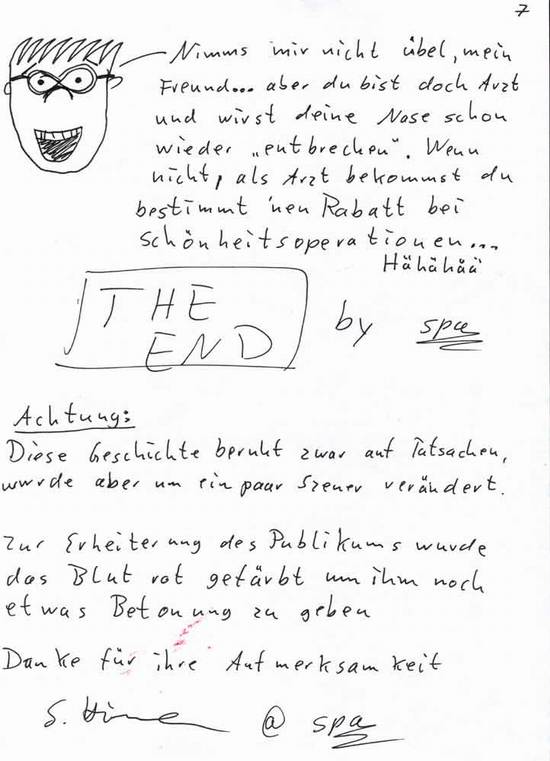 7
Nimms mir nicht übel, mein
Freund... aber du bist doch Arzt
und wirst deine Nase schon
wieder „entbrechen". Wenn
nicht, als Arzt bekommst du
bestimmt 'nen Rabatt bei
Schönheitsoperationen...
Hähähää
THE
END
by spa
Achtung:
Diese Geschichte beruht zwar auf Tatsachen,
wurde aber um ein paar Szenen verändert.
Zur Erheiterung des Publikums wurde
das Blut rot gefärbt um ihm noch
etwas Betonung zu geben
Danke für ihre Aufmerksamkeit
S. @ spa